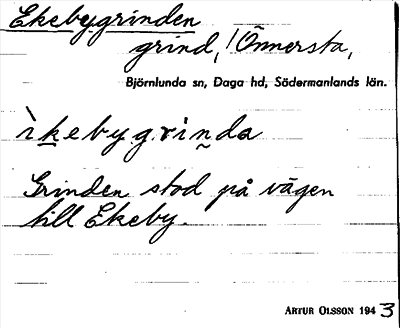 Ekebygrinden
grind, / Önnersta,
Björnlunda sn, Daga hd, Södermanlands län.
ìkebygrinda
Grinden stod på vägen
till Ekeby.
ARTUR OLSSON 1943